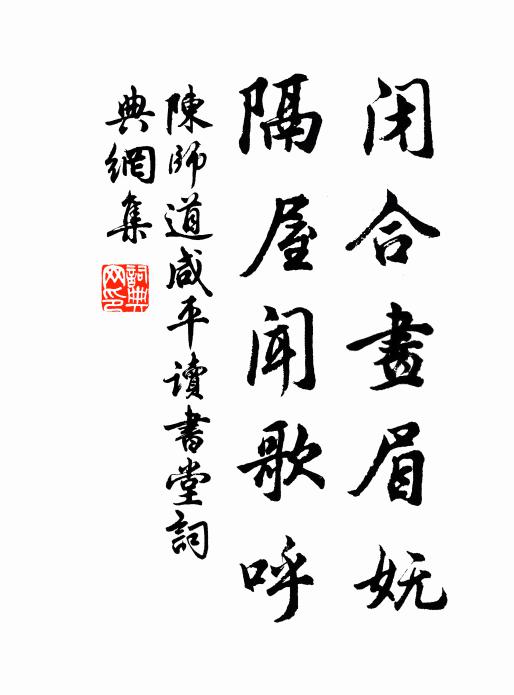 闭合畫眉妩
隔屋闻歌呼
陳師道咸平讀書堂詞
典網集
詞典网印